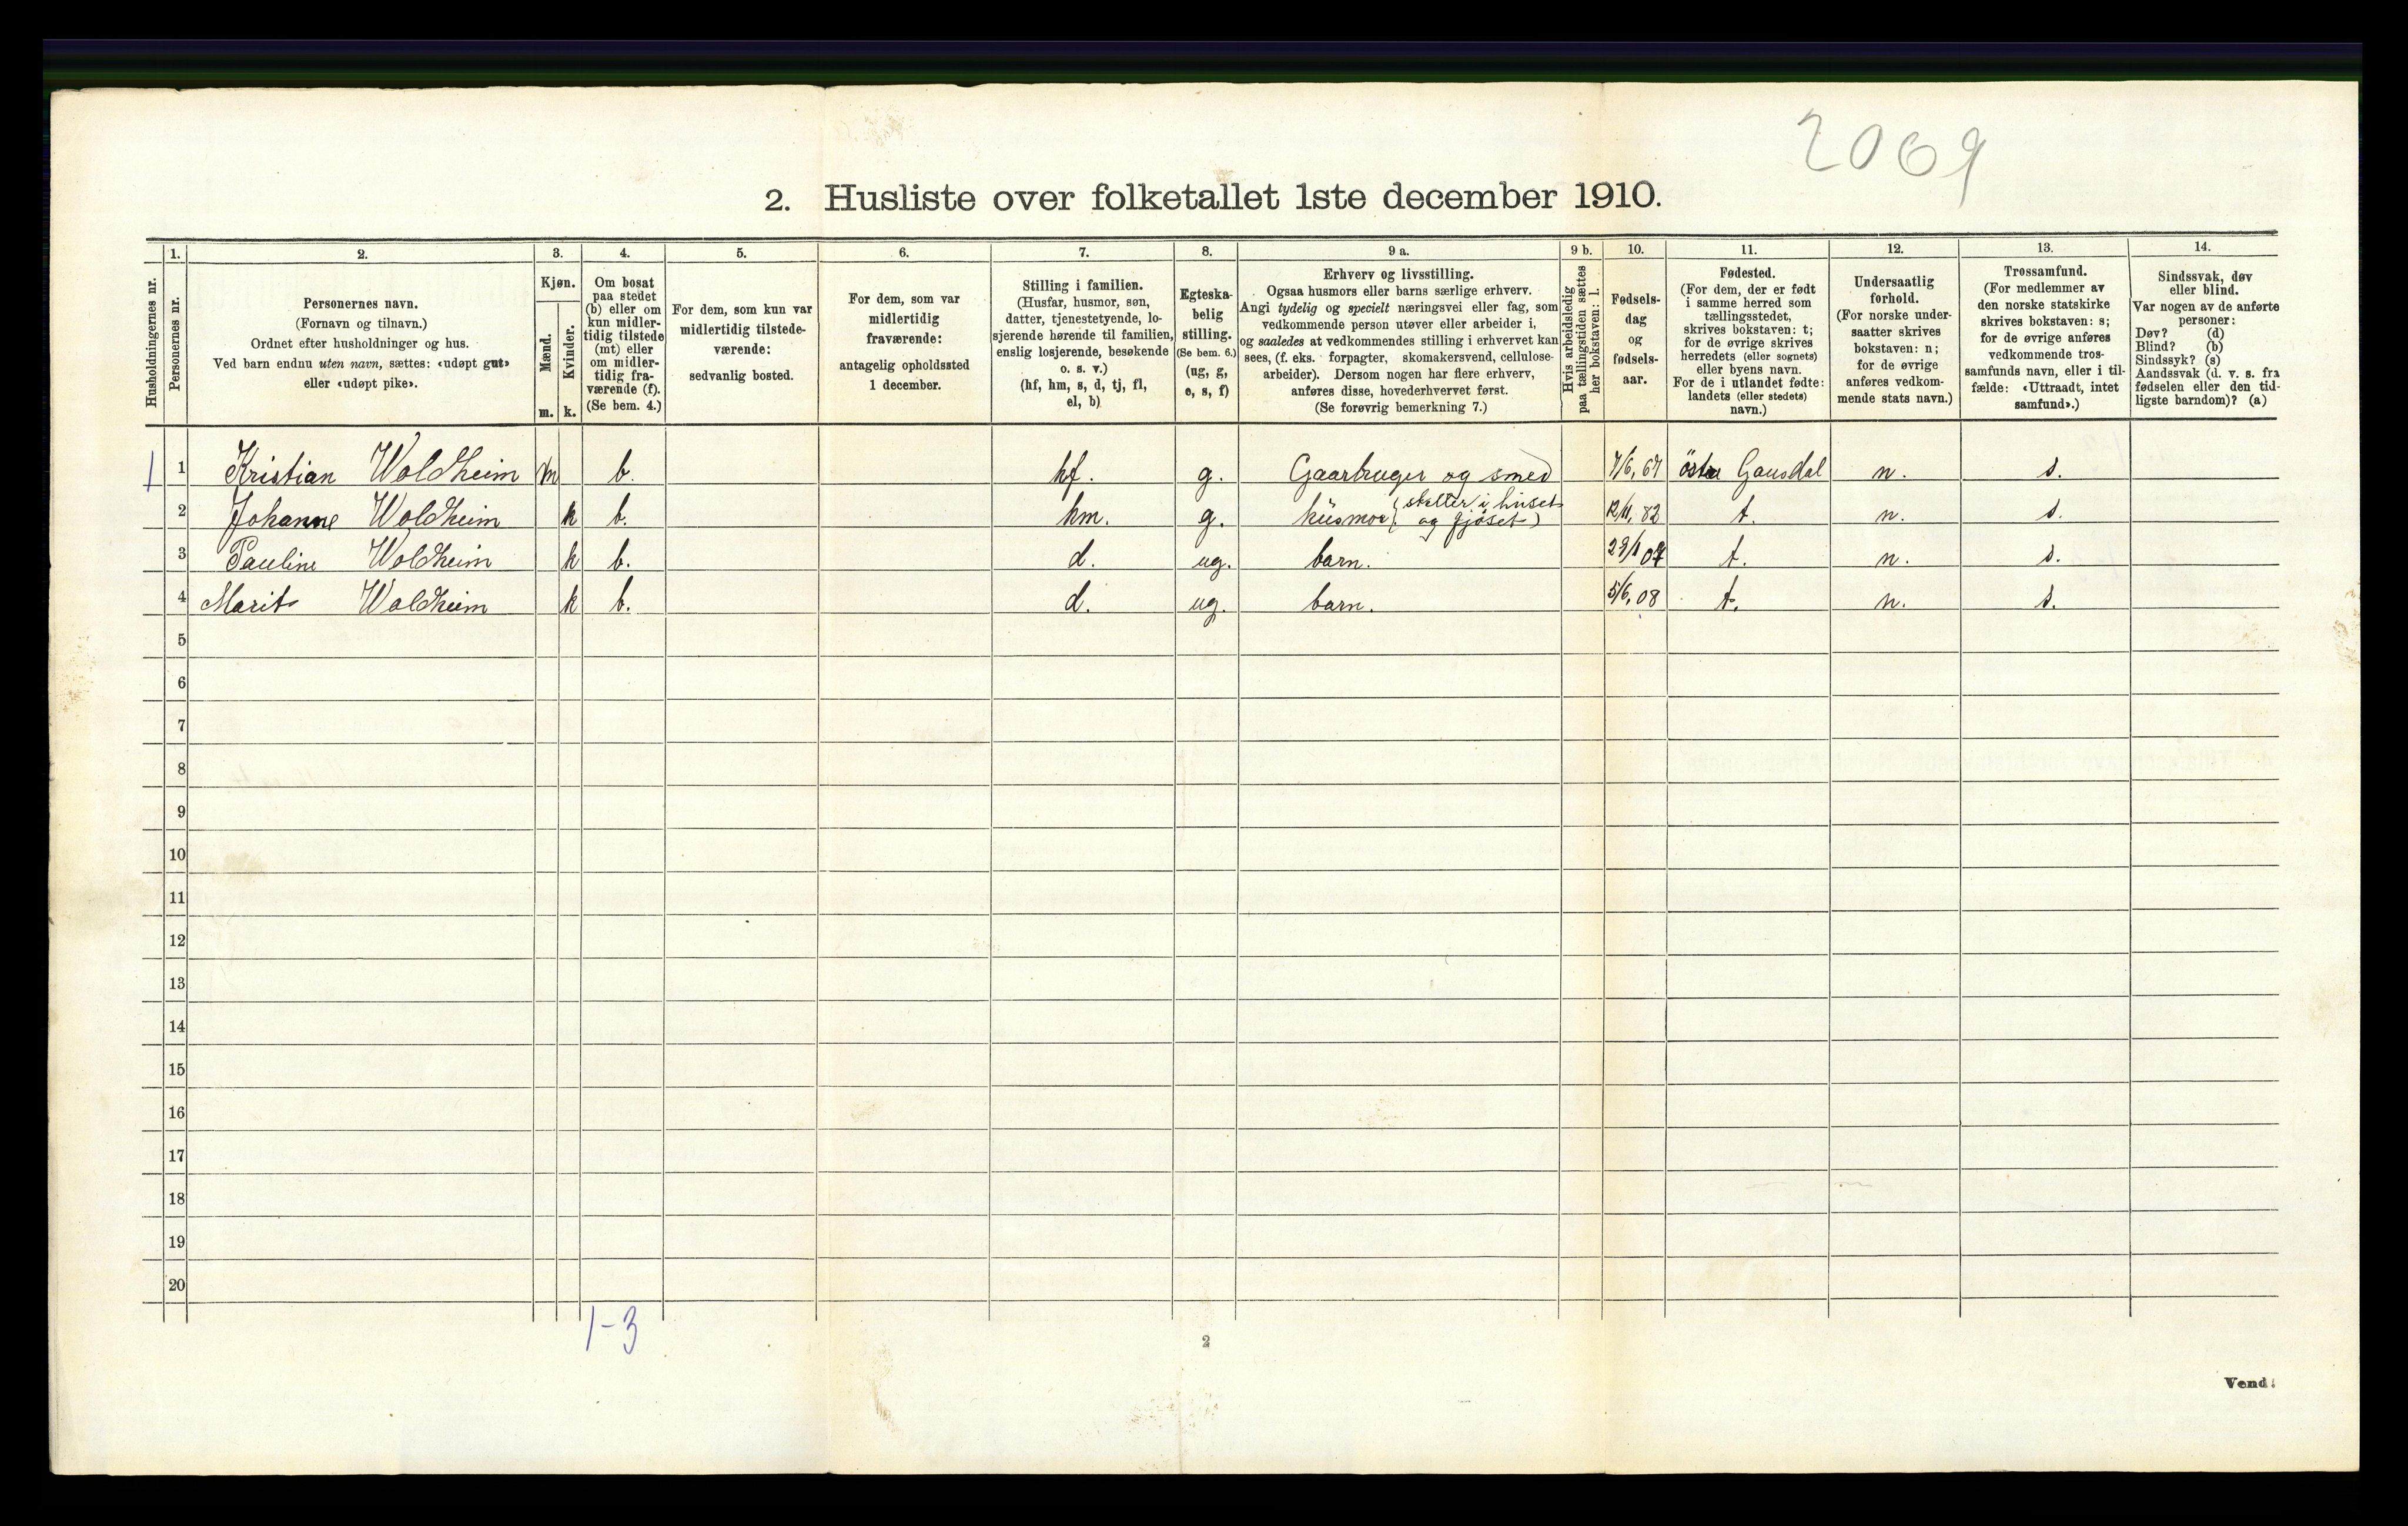 2069
2. Husliste over folketallet 1ste december 1910.
Husholdningernes nr.
1.
Personernes nr.
2.
Personernes navn.
(Fornavn og tilnavn.)
Ordnet efter husholdninger og hus.
Ved barn endnu uten navn, sættes: «udøpt gut»
eller «udøpt pike».
3.
Kjøn.
Mænd.
Kvinder.
m. k.
4.
Om bosat
paa stedet
(b) eller om
kun midler-
tidig tilstede
(mt) eller
om midler-
tidig fra-
værende (f).
(Se bem. 4.)
5.
For dem, som kun var
midlertidig tilstede-
værende:
sedvanlig bosted.
6.
For dem, som var
midlertidig
fraværende:
antagelig opholdssted
1 december.
7.
Stilling i familien.
(Husfar, husmor, søn,
datter, tjenestetyende, lo-
sjerende hørende til familien,
enslig losjerende, besøkende
o. s. v.)
(hf, hm, s, d, tj, fl,
el, b)
8.
Egteska-
belig
stilling.
(Se bem. 6.)
(ug, g,
e, s, f)
9 a.
Erhverv og livsstilling.
Ogsaa husmors eller barns særlige erhverv.
Angi tydelig og specielt næringsvei eller fag, som
vedkommende person utøver eller arbeider i,
og saaledes at vedkommendes stilling i erhvervet kan
sees, (f. eks. forpagter, skomakersvend, cellulose-
arbeider). Dersom nogen har flere erhverv,
anføres disse, hovederhvervet først.
(Se forøvrig bemerkning 7.)
9 b.
Hvis arbeidsledig
paa tællingstiden sættes
her bokstaven: l.
10.
Fødsels-
dag
og
fødsels-
aar.
11.
Fødested.
(For dem, der er født
i samme herred som
tællingsstedet,
skrives bokstaven: t;
for de øvrige skrives
herredets (eller sognets)
eller byens navn.
For de i utlandet fødte:
landets (eller stedets)
navn.)
12.
Undersaatlig
forhold.
(For norske under-
saatter skrives
bokstaven: n;
for de øvrige
anføres vedkom-
mende stats navn.)
13.
Trossamfund.
(For medlemmer av
den norske statskirke
skrives bokstaven: s;
for de øvrige anføres
vedkommende tros-
samfunds navn, eller i til-
fælde: «Uttraadt, intet
samfund».)
14.
Sindssvak, døv
eller blind.
Var nogen av de anførte
personer:
Døv? (d)
Blind? (b)
Sindssyk? (s)
Aandssvak (d. v. s. fra
fødselen eller den tid-
ligste barndom)? (a)
1 1 Kristian Woldheim m b. hf. g. Gaarbruger og smed 7/6, 67 östre Gausdal n. s.
2 Johanne Woldheim k b. hm. g. husmor (steller i huset og fjöset) 12/11, 82 t. n. s.
3 Pauline Woldheim k b. d. ug. barn. 29/1 07 t. n. s.
4 Marit Woldheim k b. d. ug. barn. 5/6, 08 t. n. s.
5
6
7
8
9
10
11
12
13
14
15
16
17
18
19
20
1-3
2
Vend!